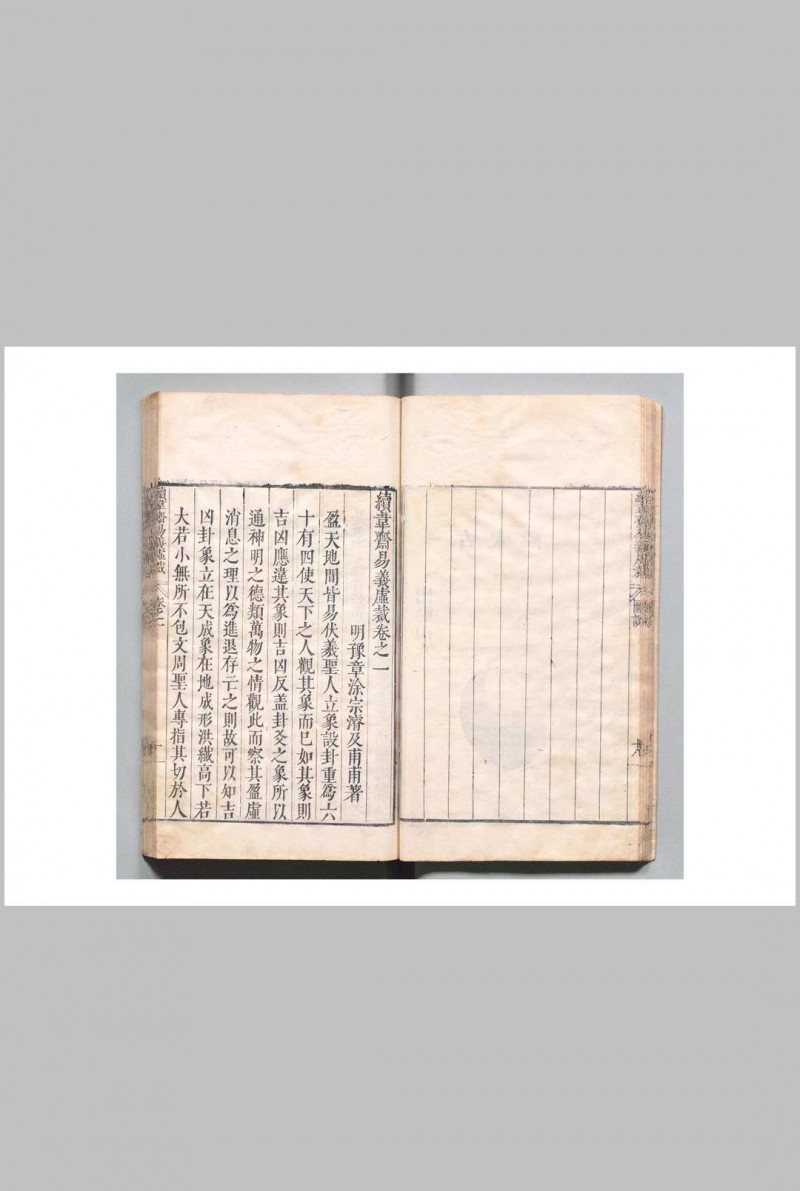 續韋齋易義虛裁卷之一
明豫章涂宗濬及甫甫著
盈天地間皆易伏羲聖人立象設卦重爲六
十有四使天下之人觀其象而已如其象則
吉凶應違其象則吉凶反盖卦爻之象所以
通神明之德類萬物之情觀此而察其盈虛
消息之理以爲進退存亡之則故可以知吉
凶卦象立在天成象在地成形洪纖高下若
大若小無所不包文周聖人專指其切於人
續韋齋易義虛裁
卷之一
一